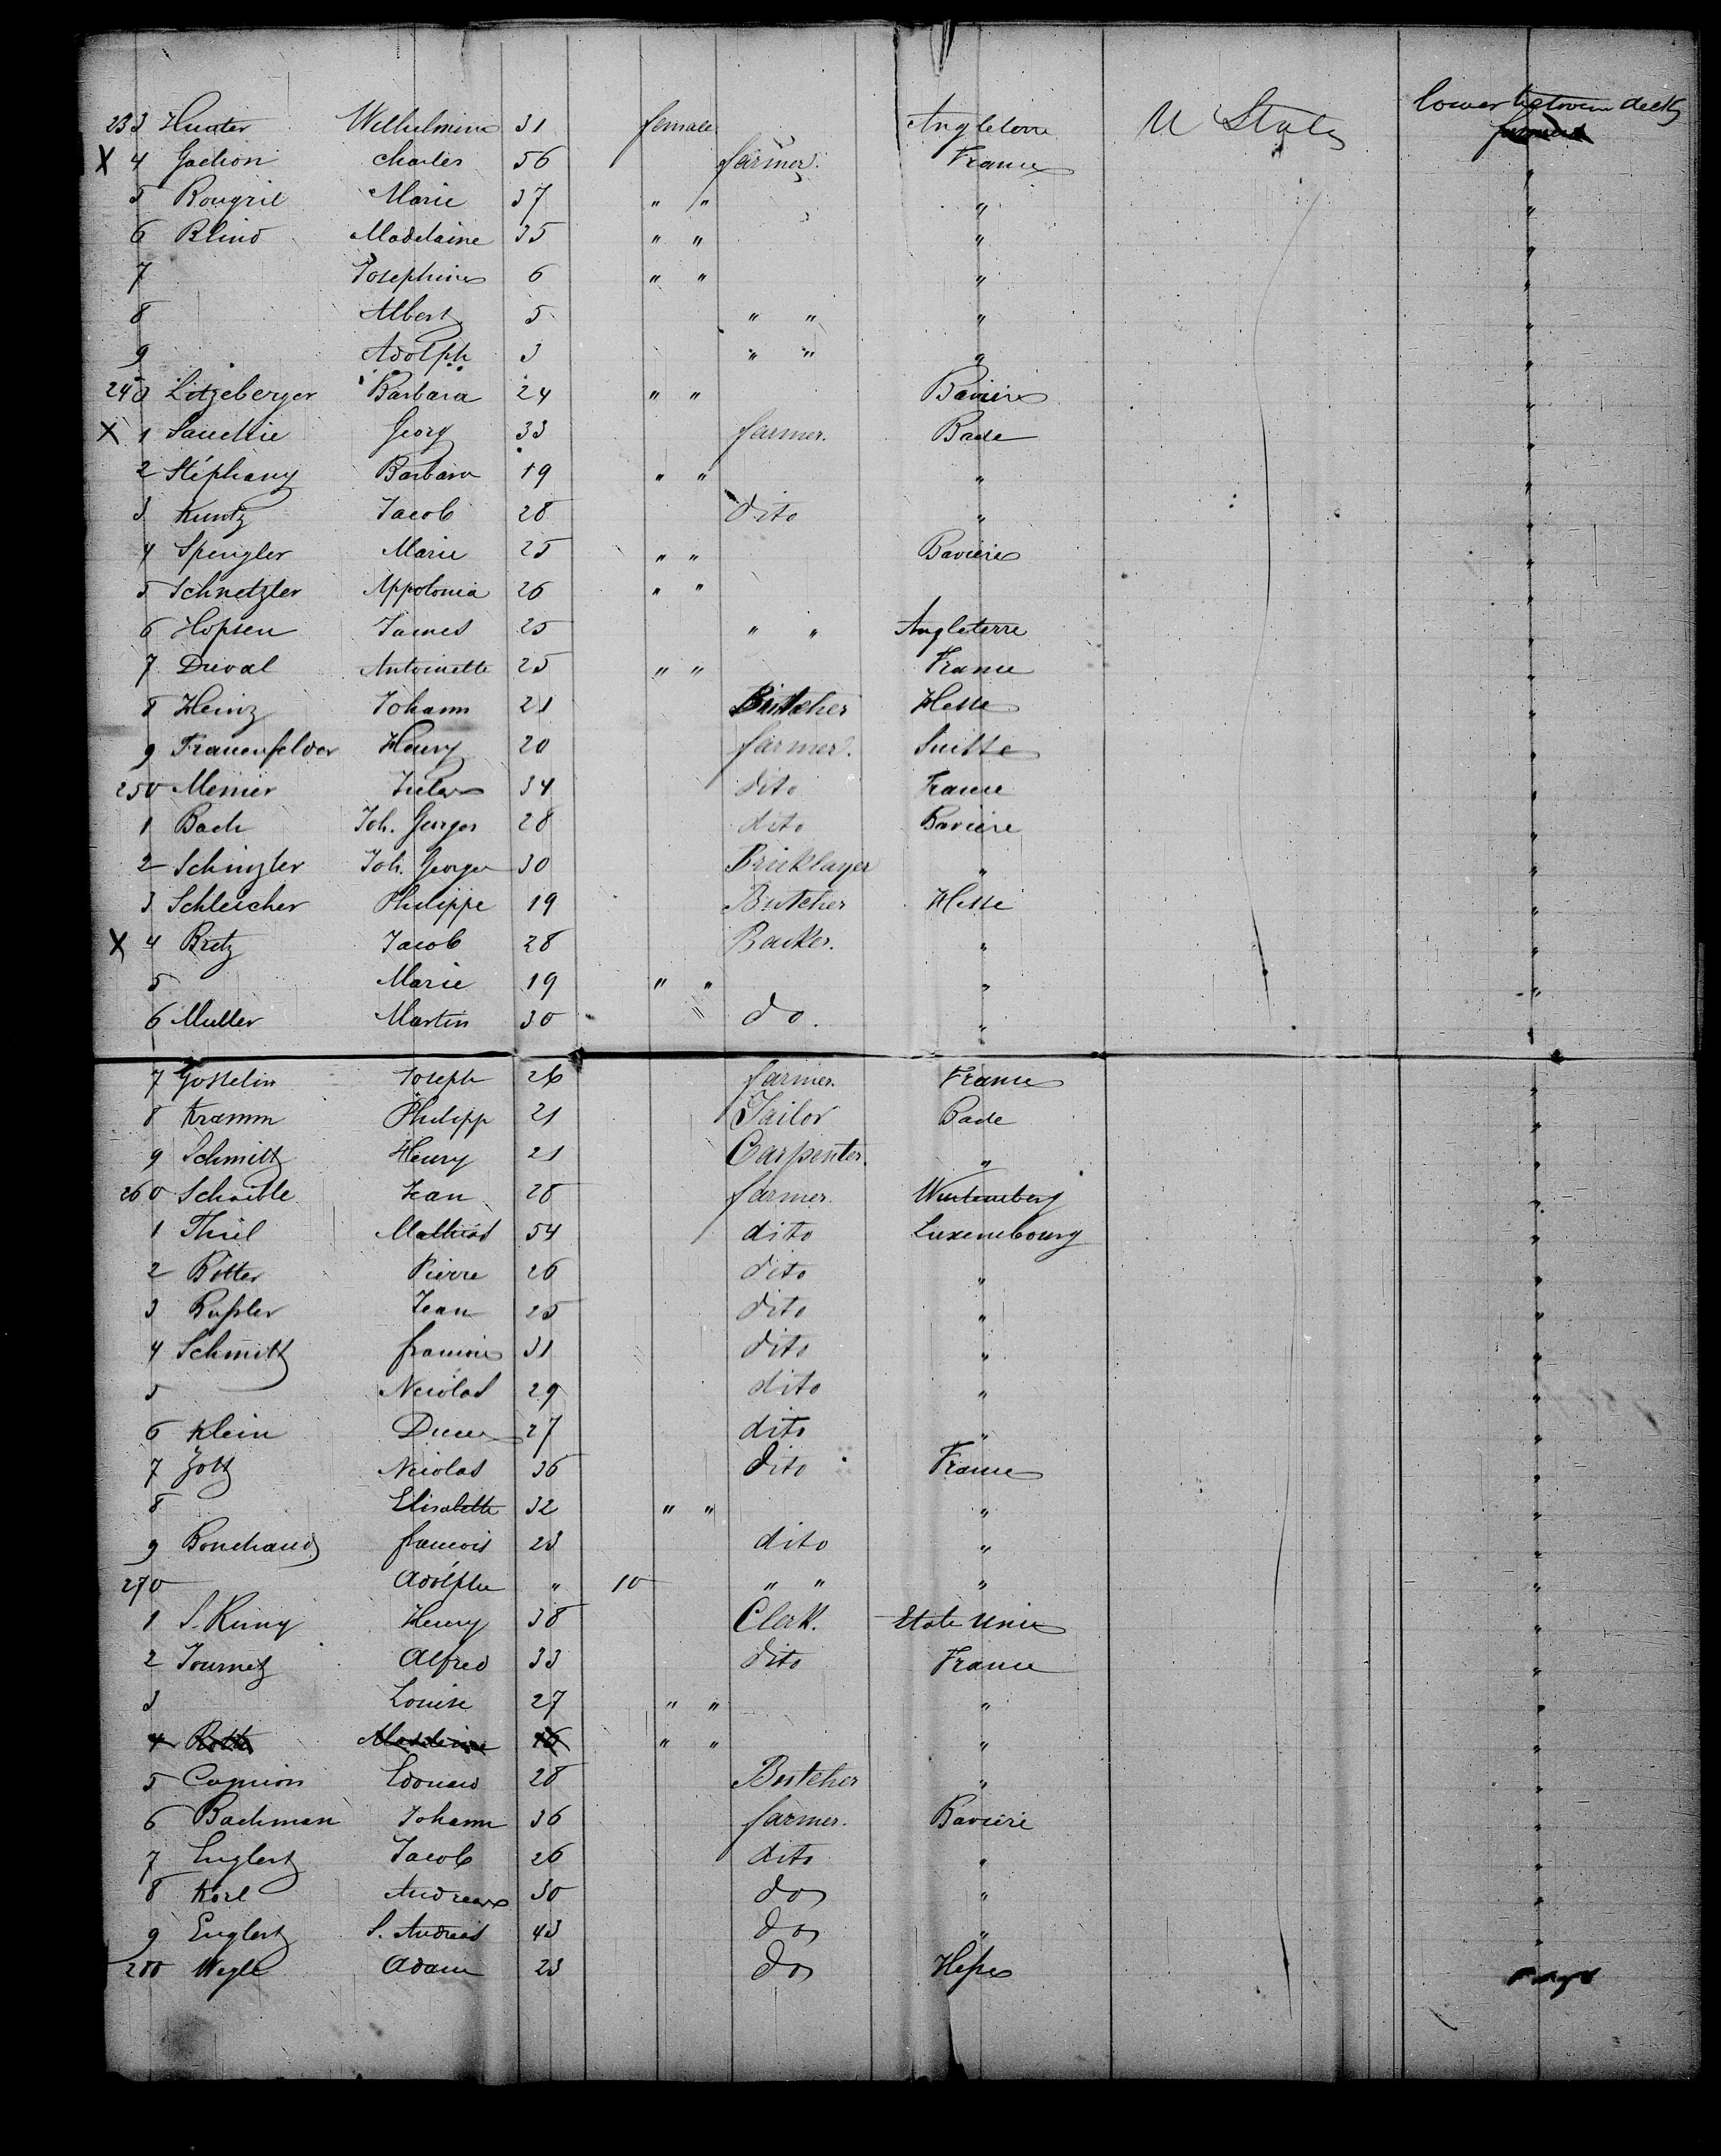 233 Hunter Wilhelmine 31 female Angleterre U States lower between decks
X 4 Gachon Charles 56 farmer. France "
5 Rougrie Marie 37 " " " "
6 Blind Madelaine 35 " " " "
7 Josephine 6 " " " "
8 Albert 5 " " " "
9 Adolph 3 " " " "
240 Litzeberger Barbara 24 " " Baviere "
X 1 Georg 33 farmer. Bade "
2 Stéphany Barbara 19 " " " "
3 Kuntz Jacob 28 dito " "
4 Spengler Marie 25 " " Baviere "
5 Schnetzler Appolonia 26 " " "
6 Hopsen James 25 " " Angleterre "
7 Duval Antoinette 25 " " France "
8 Heinz Johann 21 Butcher Hesse "
9 Frauenfelder Henry 20 farmer. Suisse "
250 Menier Jules 34 dito France "
1 Bach Joh. Georges 28 dito Baviere "
2 Schinzler Joh. George 30 Bricklayer " "
3 Schleicher Philippe 19 Butcher Hesse "
X 4 Bretz Jacob 28 Backer. " "
5 Marie 19 " " " "
6 Muller Martin 30 " do. " "
7 Gosselin Joseph 26 farmer. France "
8 Kramm Philipp 21 Tailor Bade "
9 Schmitt Henry 21 Carpenter. " "
260 Schaible Jean 28 farmer. Wurtemberg "
1 Thiel Mathias 54 dito Luxembourg "
2 Botter Pierre 26 dito " "
3 Bußler Jean 25 dito " "
4 Schmitt 31 dito " "
5 Nicolas 29 dito " "
6 Klein 27 dito " "
7 Zott Nicolas 36 dito France "
8 Elisabette 32 " " " "
9 Bouchaud francois 23 dito " "
270 Adolphe " 10 " " " "
1 Henry 38 Clerk. Etats Unis "
2 Tournez Alfred 33 dito France "
3 Louise 27 " " " "
4 Roth Madeleine 46 " " " "
5 Edouard 28 Butcher " "
6 Bachman Johann 36 farmer. Baviere "
7 Englert Jacob 26 dito " "
8 Karl Andreas 30 do " "
9 Englert S. Andreas 43 do " "
280 Adam 23 do Heße